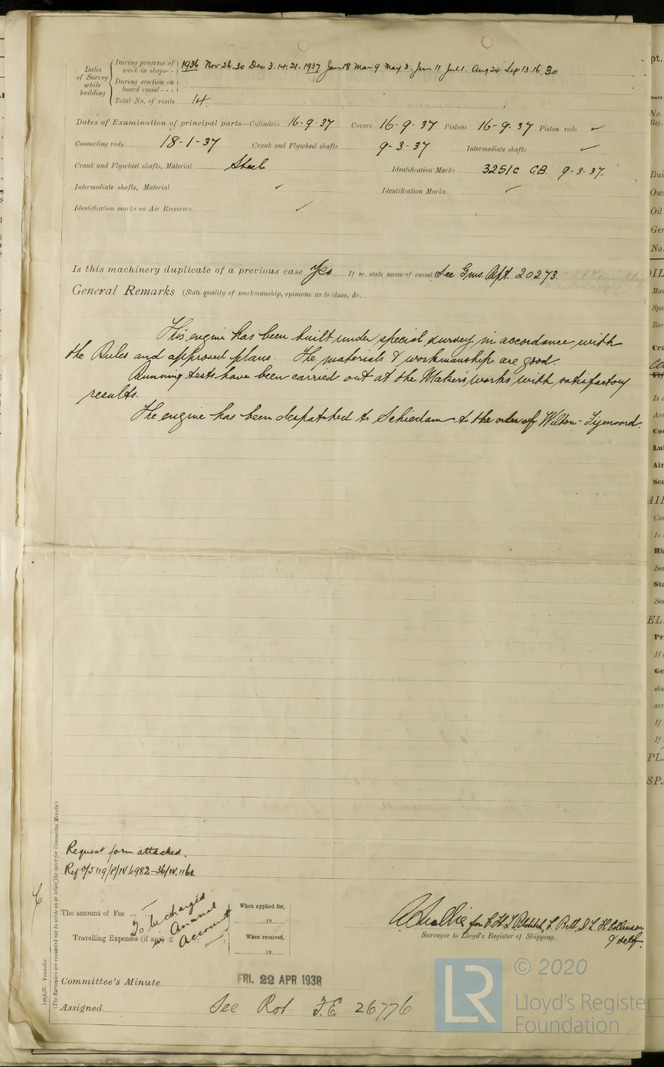 Dates of Survey while building
During progress of work in shops - - 1936 Nov 26.30 Dec 3.14.21. 1937 Jan 18 Mar 9 May 3. Jun 11 Jul 1. Aug 24 Sep 13.16.30
During erection on board vessel - - -
Total No. of visits 14
Dates of Examination of principal parts—Cylinders 16-9-37 Covers 16-9-37 Pistons 16-9-37 Piston rods ✓
Connecting rods 18-1-37 Crank and Flywheel shafts 9-3-37 Intermediate shafts ✓
Crank and Flywheel shafts, Material Steel Identification Marks 3251C G.B. 9-3-37.
Intermediate shafts, Material ✓ Identification Marks ✓
Identification marks on Air Receivers ✓
Is this machinery duplicate of a previous case Yes If so, state name of vessel See Gms. Rpt. 20273.
General Remarks (State quality of workmanship, opinions as to class, &c.
This engine has been built under special survey in accordance with
the Rules and approved plans. The materials & workmanship are good.
Running tests have been carried out at the Makers works with satisfactory
results.
The engine has been despatched to Schiedam to the order of Wilton-Fijenoord.
Request form attached.
The amount of Fee ...
Travelling Expenses (if any) £
To be charged in Annual Account
When applied for,
19
When received,
19
Surveyor to Lloyd's Register of Shipping.
Committee's Minute FRI. 22 APR 1938
Assigned See Rot. F.E 26776
© 2020
Lloyd's Register
Foundation
LR